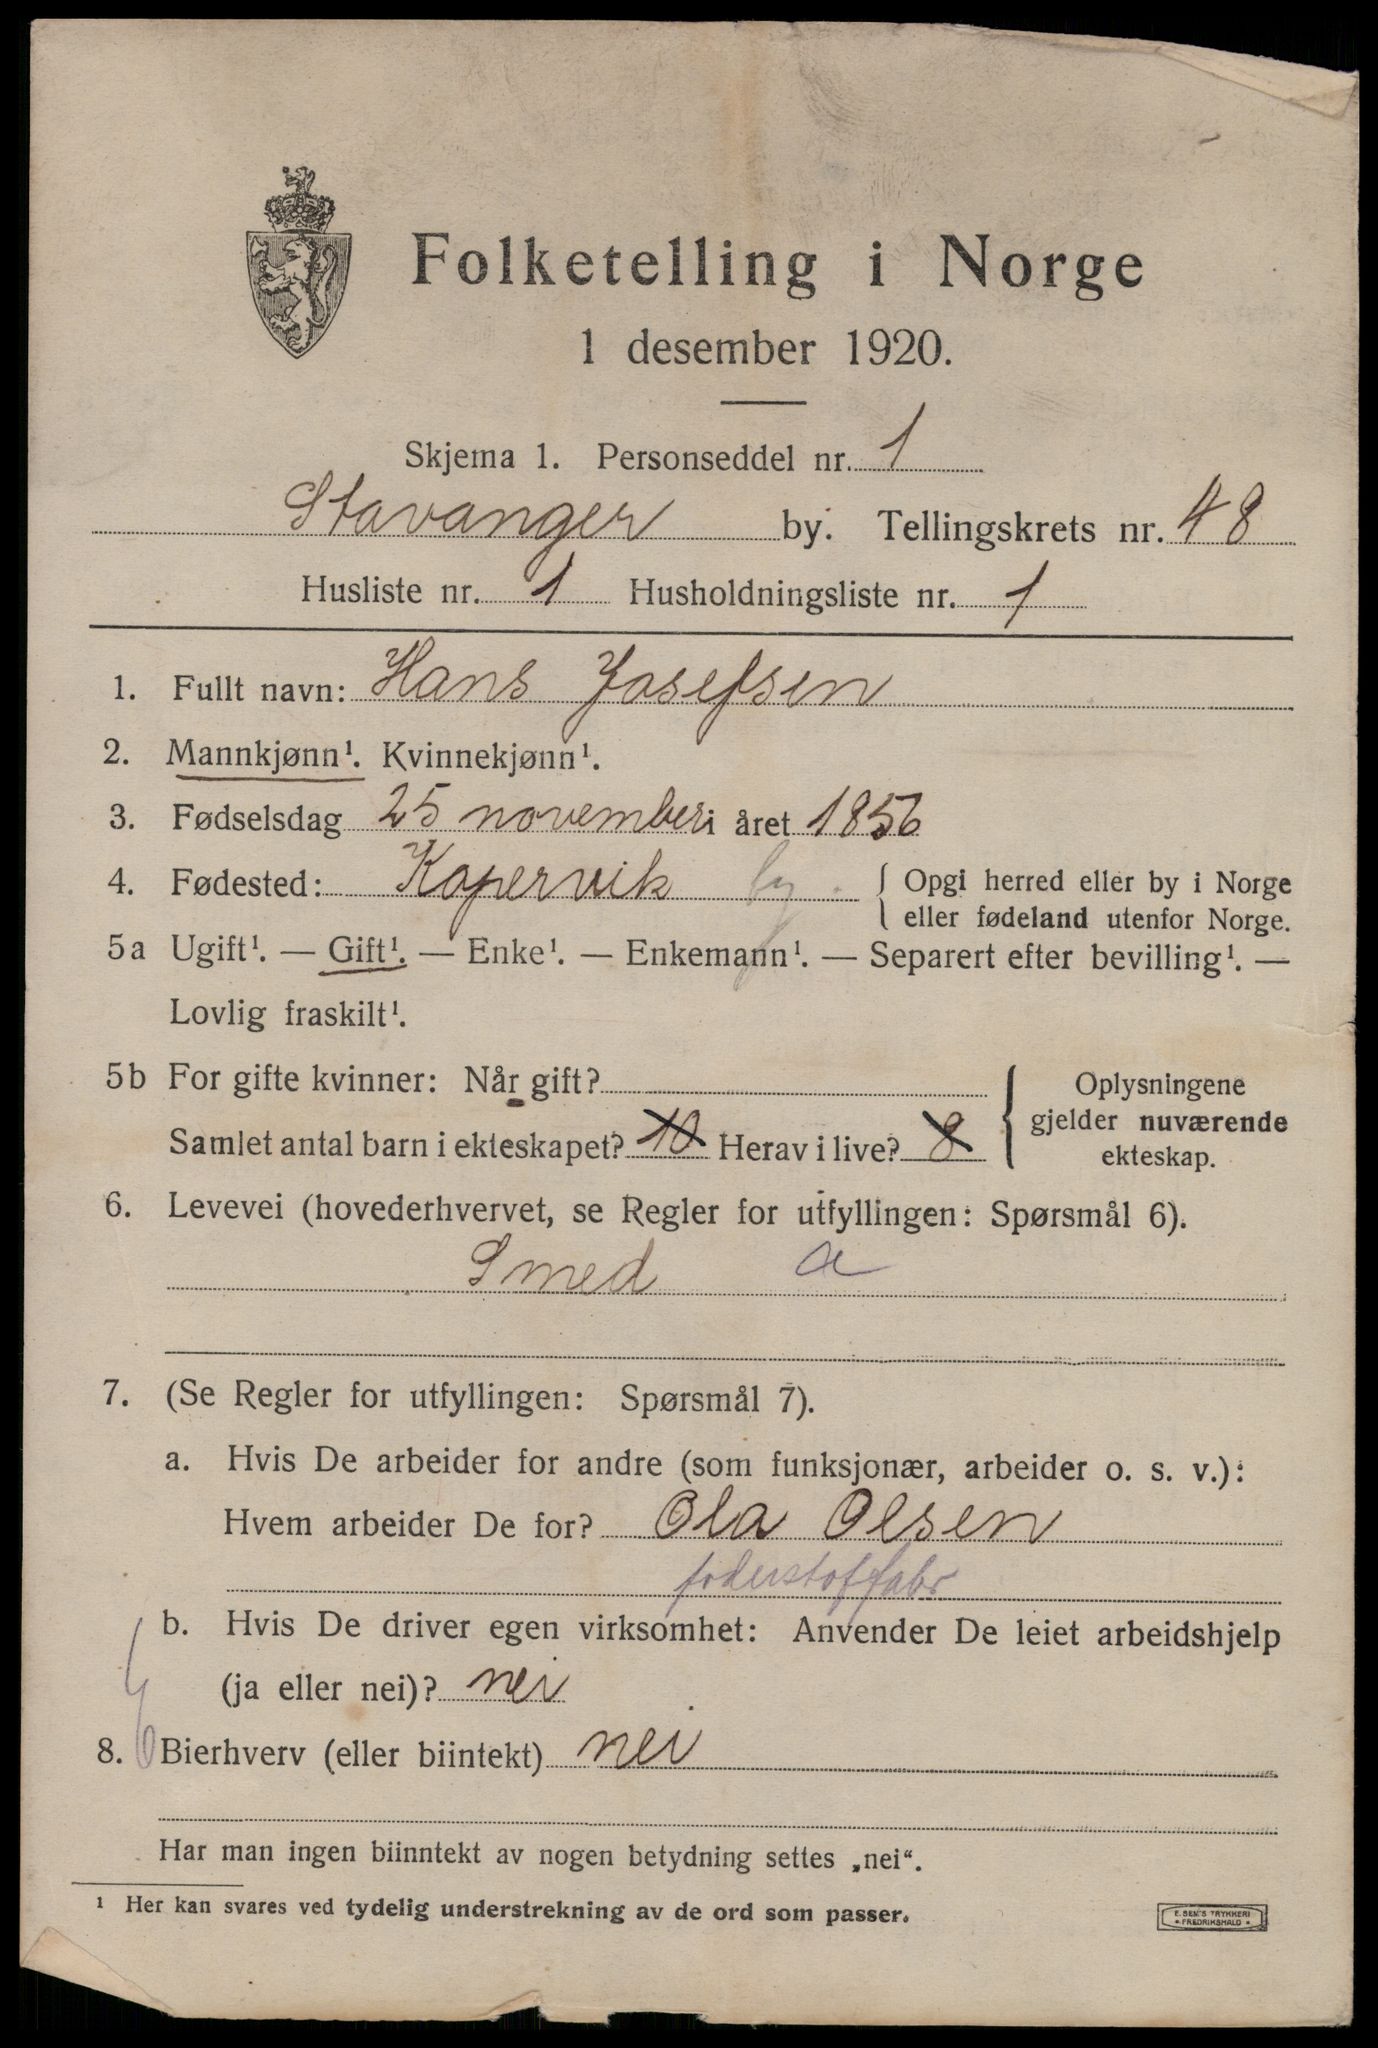 Folketelling i Norge
1 desember 1920.
Skjema 1. Personseddel nr. 1
Stavanger by. Tellingskrets nr. 48
Husliste nr. 1 Husholdningsliste nr. 1
1. Fullt navn: Hans Josefsen
2. Mannkjønn¹. Kvinnekjønn¹.
3. Fødselsdag 25 november i året 1856
4. Fødested: Kopervik by. { Opgi herred eller by i Norge
eller fødeland utenfor Norge.
5a Ugift¹. — Gift¹. — Enke¹. — Enkemann¹. — Separert efter bevilling¹. —
Lovlig fraskilt¹.
5b For gifte kvinner: Når gift?
Samlet antal barn i ekteskapet? 10 Herav i live? 8
{ Oplysningene
gjelder nuværende
ekteskap.
6. Levevei (hovederhvervet, se Regler for utfyllingen: Spørsmål 6).
Smed a
7. (Se Regler for utfyllingen: Spørsmål 7).
a. Hvis De arbeider for andre (som funksjonær, arbeider o. s. v.):
Hvem arbeider De for? Ola Olsen
foderstoffabr
b. Hvis De driver egen virksomhet: Anvender De leiet arbeidshjelp
(ja eller nei)? nei
8. Bierhverv (eller biintekt) nei
Har man ingen biinntekt av nogen betydning settes „nei“.
¹ Her kan svares ved tydelig understrekning av de ord som passer.
E. SEM'S TRYKKERI
• FREDRIKSHALD •